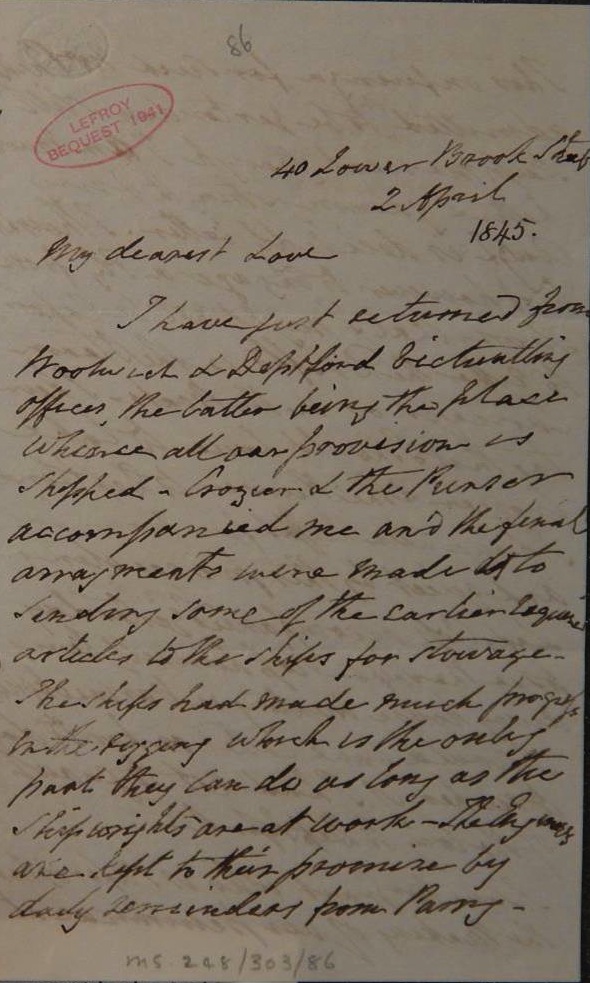 86
LEFROY
BEQUEST 1941
40 Lower Brook Street
2 April
1845.
My dearest Love
I have just returned from
Woolwich & Deptford Victualling
offices, the latter being the place
whence all our provision is
shipped - Crozier & the Purser
accompanied me and the final
arragments were made as to
sending some of the earlier required
articles to the ships for stowage -
The ships had made much progress
in the rigging which is the only
part they can do as long as the
Shipwrights are at work - The Engineers
are kept to their promise by
daily reminders from Parry -
MS. 248/303/86